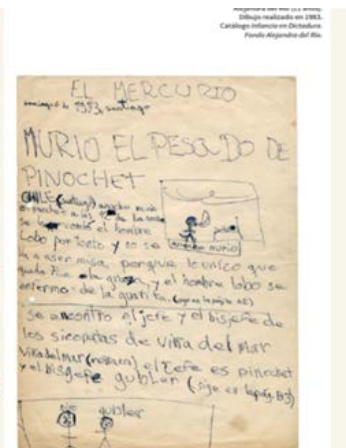 Alejandra del Río (11 años).
Dibujo realizado en 1983.
Catálogo Infancia en Dictadura.
Fondo Alejandra del Río.
EL MERCURIO
1983, santiago
MURIO EL PESADO DE
PINOCHET
CHILE (santiago) anoche murio
pinochet a las de la noche
se lo comió el hombre
Lobo por tonto y no se
le va a aser misa, porque lo unico que
quedo fue la y el hombre lobo se
enfermo de la guatita.
anoche murio
se encontro el jefe y el bisjefe de
los sicopatas de viña del mar
Viña del mar el Jefe es pinochet
y el bisgefe gubler (sige en la pág. B3)
gubler